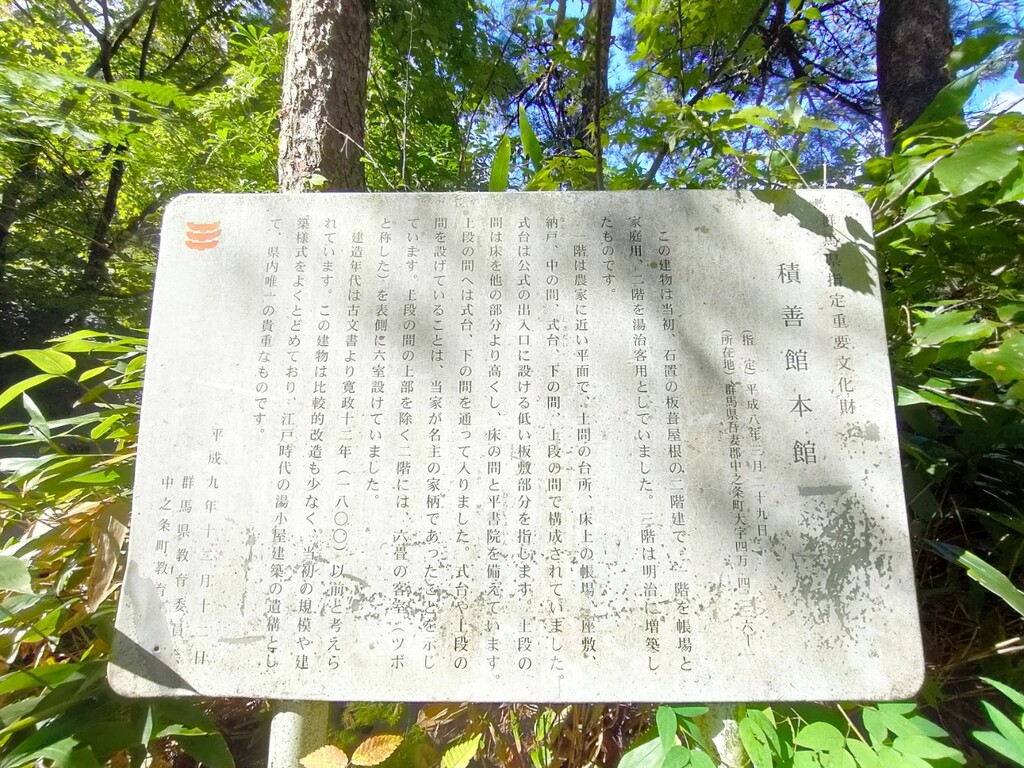 県指定重要文化財
積善館本館
(指定)平成八年三月二十九日
(所在地)群馬県吾妻郡中之条町大字四万 四二三六ー
この建物は当初、石置の板葺屋根の二階建で 階を帳場と
家庭用、二階を湯治客用としていました。三階は明治に増築し
たものです。
一階は農家に近い平面で、土間の台所、床上の帳場、座敷、
納戸、中の間、式台、下の間、上段の間で構成されていました。
式台は公式の出入口に設ける低い板敷部分を指します。上段の
間は床を他の部分より高くし、床の間と平書院を備えています。
上段の間へは式台、下の間を通って入りました。式台や上段の
間を設けていることは、当家が名主の家柄であったことを示し
ています。上段の間の上部を除く二階には、六畳の客室(ツボ
と称した)を表側に六室設けていました。
建造年代は古文書より寛政十二年(一八〇〇)以前と考えら
れています。この建物は比較的改造も少なく、当初の規模や建
築様式をよくとどめており、江戸時代の湯小屋建築の遺構とし
て、県内唯一の貴重なものです。
平成九年十二月十二日
群馬県教育委員
中之条町教育